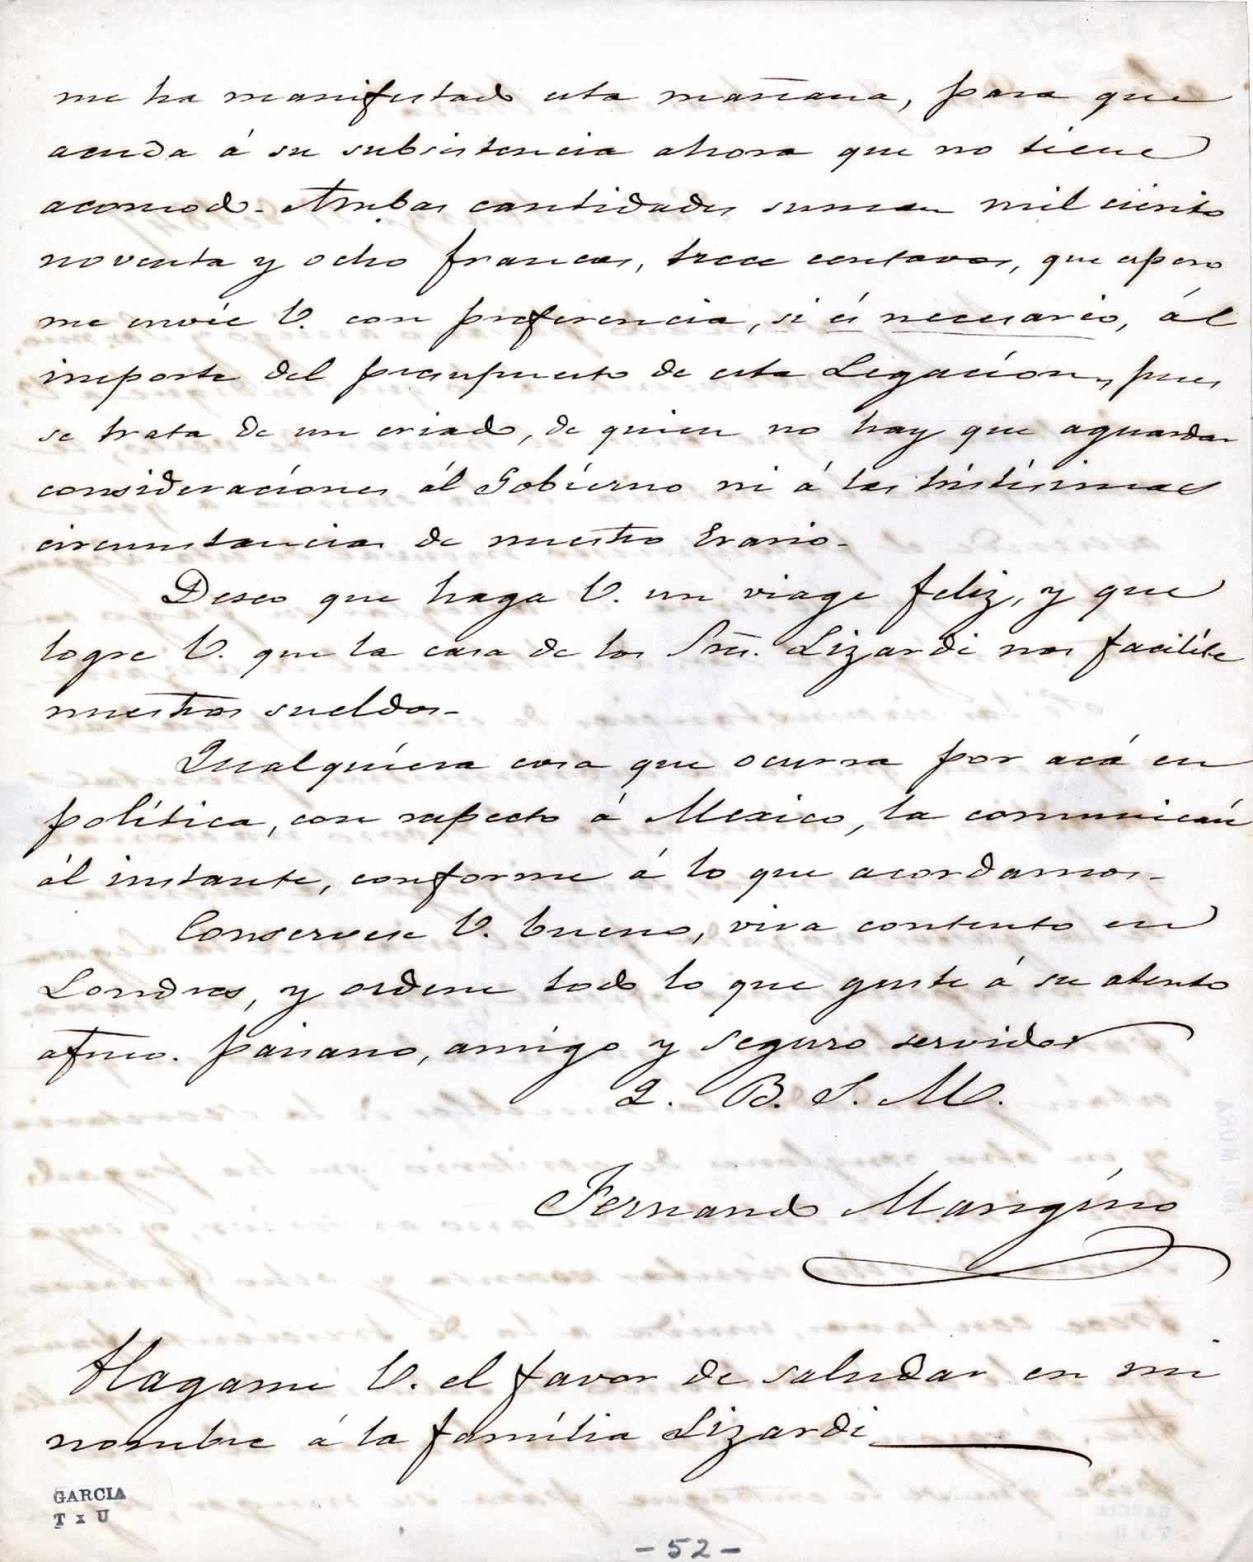 me ha manifestado esta mañana, para que
acuda á su subsistencia ahora que no tiene
acomodo. Ambas cantidades suman mil ciento
noventa y ocho francos, trece centavos, que espero
me envíe V. con preferencia, si és necesario, ál
importe del presupuesto de esta Legación, pues
se trata de un criado, de quien no hay que aguardar
consideraciónes ál Gobierno ni á las tristísimas
circunstancias de nuestro Erario.
Deseo que haga V. un viage feliz, y que
logre V. que la casa de los Sres. Lizardi nos facilite
nuestros sueldos.
Qualquiera cosa que ocurra por acá en
política, con respecto á Mexico, la comunicaré
ál instante, conforme á lo que acordamos.
Conservese V. bueno, viva contento en
Londres, y ordene todo lo que guste á su atento
afmo. paisano, amigo y seguro servidor
Q. B. S. M.
Fernando Mangíno
Hagame V. el favor de saludar en mi
nombre á la família Lizardi
GARCIA
T x U
- 52 -